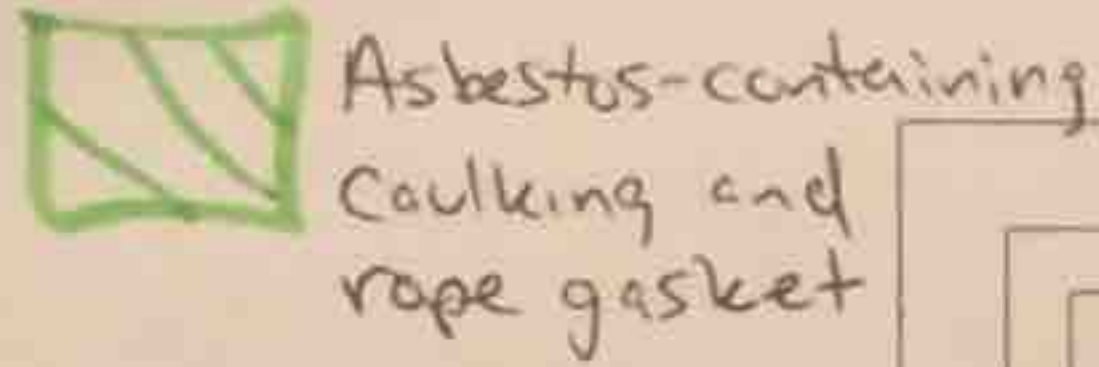 Asbestos-containing
Caulking and
rope gasket